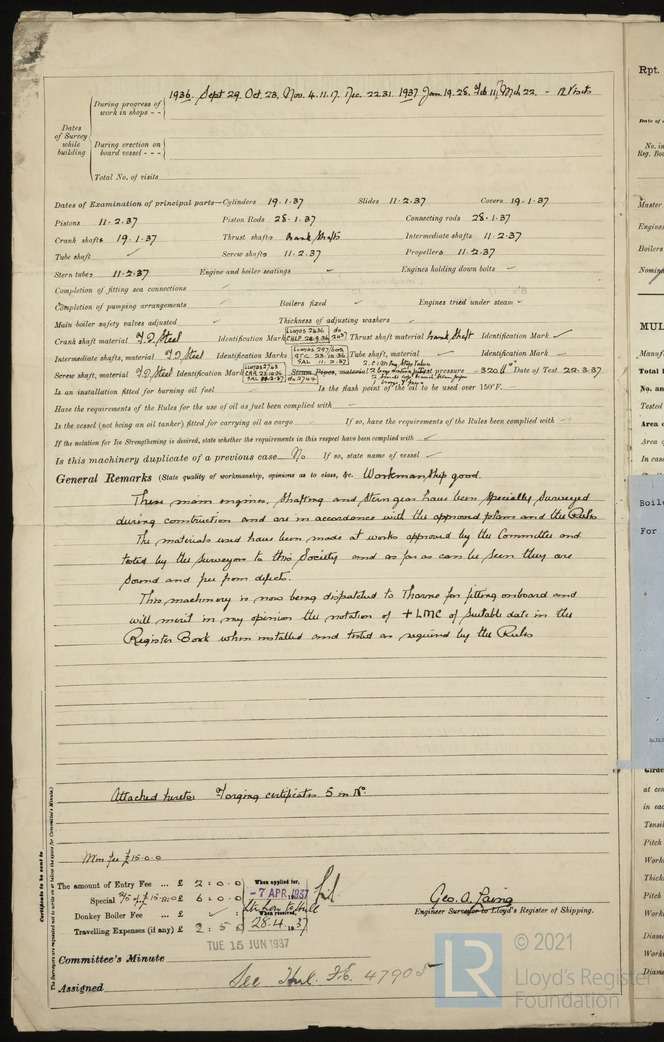 1936. Sept 29. Oct. 23. Nov. 4. 11. 17. Dec. 22. 31. 1937 Jan. 19. 28. Feb 11. Mch 22. - 12 Visits
Dates of Survey while building
During progress of work in shops - -
During erection on board vessel - - -
Total No. of visits
Dates of Examination of principal parts—Cylinders 19.1.37 Slides 11.2.37 Covers 19.1.37
Pistons 11.2.37 Piston Rods 28.1.37 Connecting rods 28.1.37
Crank shafts 19.1.37 Thrust shafts Crank Shafts Intermediate shafts 11.2.37
Tube shaft Screw shafts 11.2.37 Propellers 11.2.37
Stern tubes 11.2.37 Engine and boiler seatings Engines holding down bolts
Completion of fitting sea connections
Completion of pumping arrangements Boilers fixed Engines tried under steam
Main boiler safety valves adjusted Thickness of adjusting washers
Crank shaft material I.Steel Identification Mark Thrust shaft material Crank Shaft Identification Mark
Intermediate shafts, material Steel Identification Marks Tube shaft, material Identification Mark
Screw shaft, material Steel Identification Mark Steam Pipes, material Test pressure 320 Date of Test 22.3.37
Is an installation fitted for burning oil fuel Is the flash point of the oil to be used over 150°F.
Have the requirements of the Rules for the use of oil as fuel been complied with
Is the vessel (not being an oil tanker) fitted for carrying oil as cargo If so, have the requirements of the Rules been complied with
If the notation for Ice Strengthening is desired, state whether the requirements in this respect have been complied with
Is this machinery duplicate of a previous case No If so, state name of vessel
General Remarks (State quality of workmanship, opinions as to class, &c. Workmanship good.
These main engines, Shafting and Sterngear have been specially surveyed
during construction and are in accordance with the approved plans and the Rules
The materials used have been made at works approved by the Committee and
tested by the surveyors to this Society and as far as can be seen they are
sound and free from defects.
This machinery is now being dispatched to Thorne for fitting onboard and
will merit in my opinion the notation of + LMC of suitable date in the
Register Book when installed and tested as required by the Rules
Attached hereto Forging certificates 5 in No.
Certificate to be sent to
(The Surveyors are requested not to write on or below the space for Committee's Minute.)
The amount of Entry Fee ... £ 2 : 0 : 0
Special £ 6 : 0 : 0
Donkey Boiler Fee ... £
Travelling Expenses (if any) £ 2 : 5 : 0
When applied for,
- 7 APR. 1937
When received,
28.4.1937
Geo. A. Laing
Engineer Surveyor to Lloyd's Register of Shipping.
TUE 15 JUN 1937
Committee's Minute
Assigned See Hul. F.E. 47905
© 2021
Lloyd's Register
Foundation
LR
Rpt.